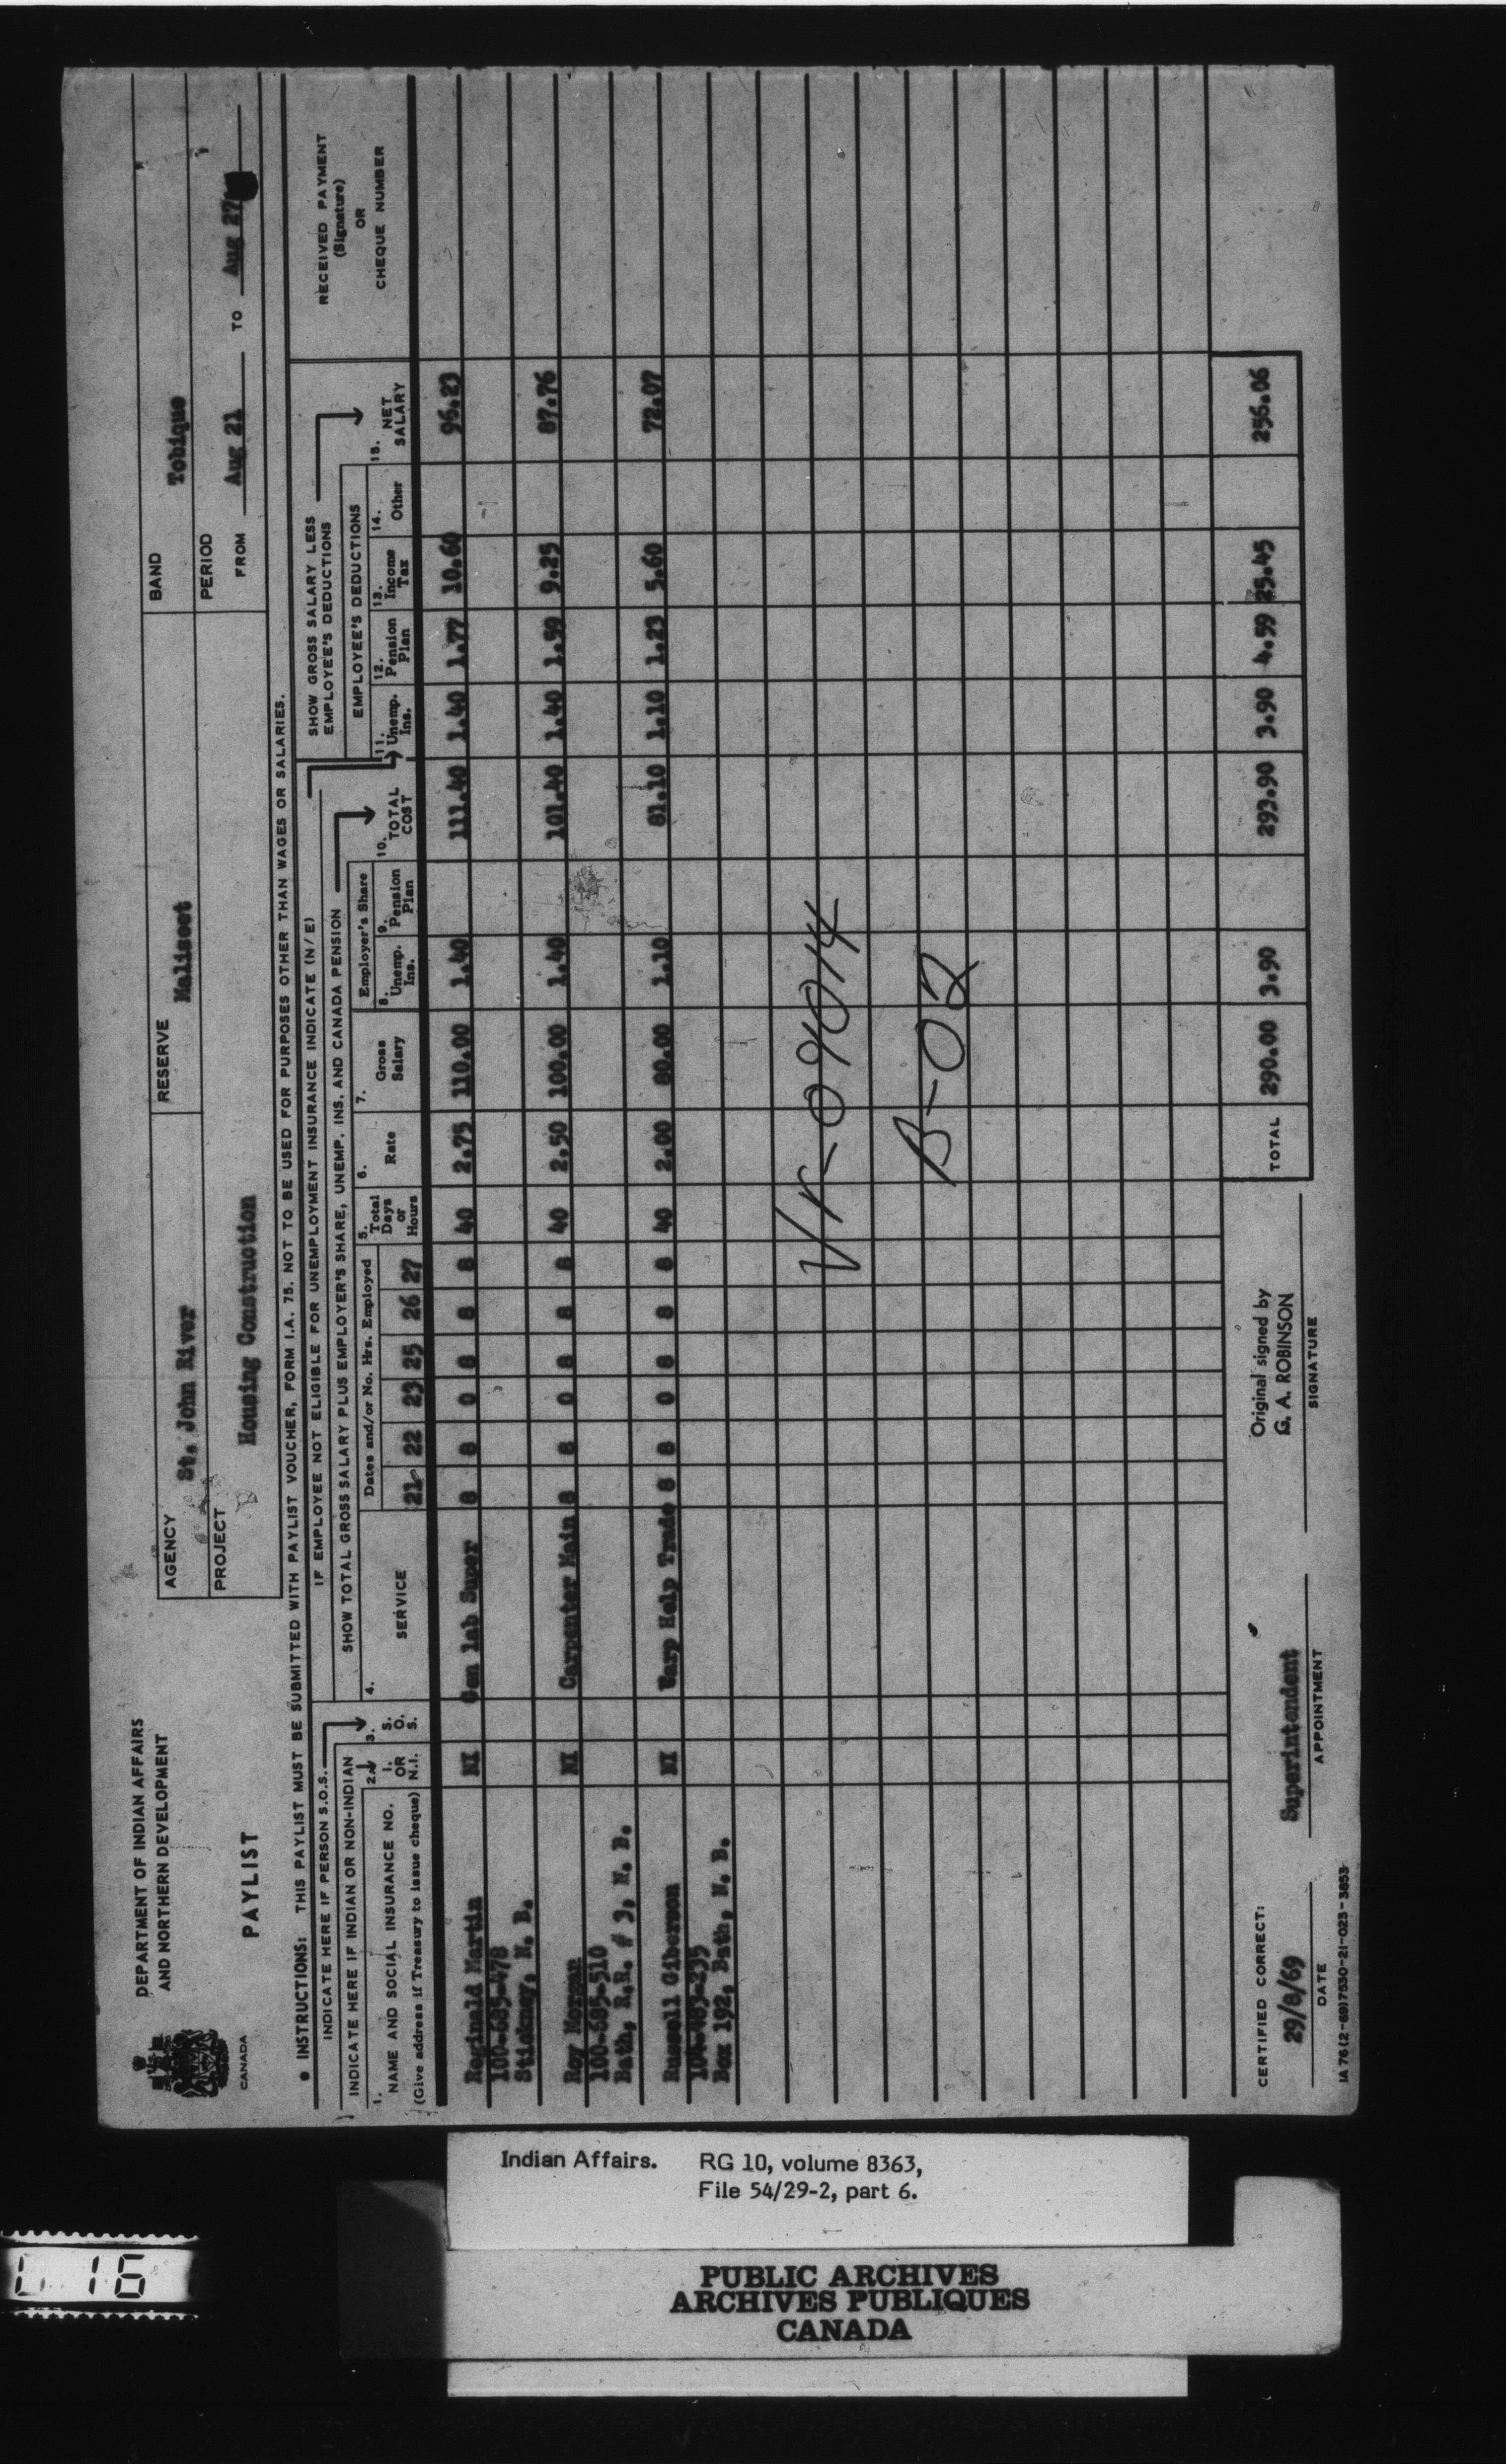 DEPARTMENT OF INDIAN AFFAIRS
AND NORTHERN DEVELOPMENT
CANADA
PAYLIST
AGENCY St. John River
RESERVE Maliseet
BAND Tobique
PROJECT Housing Construction
PERIOD
FROM Aug 21 TO Aug 27
• INSTRUCTIONS: THIS PAYLIST MUST BE SUBMITTED WITH PAYLIST VOUCHER, FORM I.A. 75. NOT TO BE USED FOR PURPOSES OTHER THAN WAGES OR SALARIES.
INDICATE HERE IF PERSON S.O.S.
IF EMPLOYEE NOT ELIGIBLE FOR UNEMPLOYMENT INSURANCE INDICATE (N/E)
INDICATE HERE IF INDIAN OR NON-INDIAN
SHOW TOTAL GROSS SALARY PLUS EMPLOYER'S SHARE, UNEMP. INS. AND CANADA PENSION
SHOW GROSS SALARY LESS
EMPLOYEE'S DEDUCTIONS
1. NAME AND SOCIAL INSURANCE NO.
(Give address if Treasury to issue cheque)
2. I. OR N.I.
3. S. O. S.
4. SERVICE
Dates and/or No. Hrs. Employed
21 22 23 25 26 27
5. Total Days or Hours
6. Rate
7. Gross Salary
Employer's Share
8. Unemp. Ins.
9. Pension Plan
10. TOTAL COST
EMPLOYEE'S DEDUCTIONS
11. Unemp. Ins.
12. Pension Plan
13. Income Tax
14. Other
15. NET SALARY
RECEIVED PAYMENT
(Signature)
OR
CHEQUE NUMBER
Reginald Martin NI Gen lab Super 8 8 0 8 8 8 40 2.75 110.00 1.40 111.40 1.40 1.77 10.60 96.23
100-685-478
Stickney, N. B.
Roy NI Carpenter Main 8 8 0 8 8 8 40 2.50 100.00 1.40 101.40 1.40 1.59 9.25 87.76
100-685-510
Bath, R.R. # 3, N. B.
Russell Giberson NI Carp Help Trade 8 8 0 8 8 8 40 2.00 80.00 1.10 81.10 1.10 1.23 5.60 72.07
104-483-235
Box 192, Bath, N. B.
B-02
TOTAL 290.00 3.90 293.90 3.90 4.59 25.45 256.06
CERTIFIED CORRECT:
29/8/69
DATE
Superintendent
APPOINTMENT
Original signed by
G. A. ROBINSON
SIGNATURE
IA 76 (2-69) 7530-21-023-3853
Indian Affairs. RG 10, volume 8363,
File 54/29-2, part 6.
PUBLIC ARCHIVES
ARCHIVES PUBLIQUES
CANADA